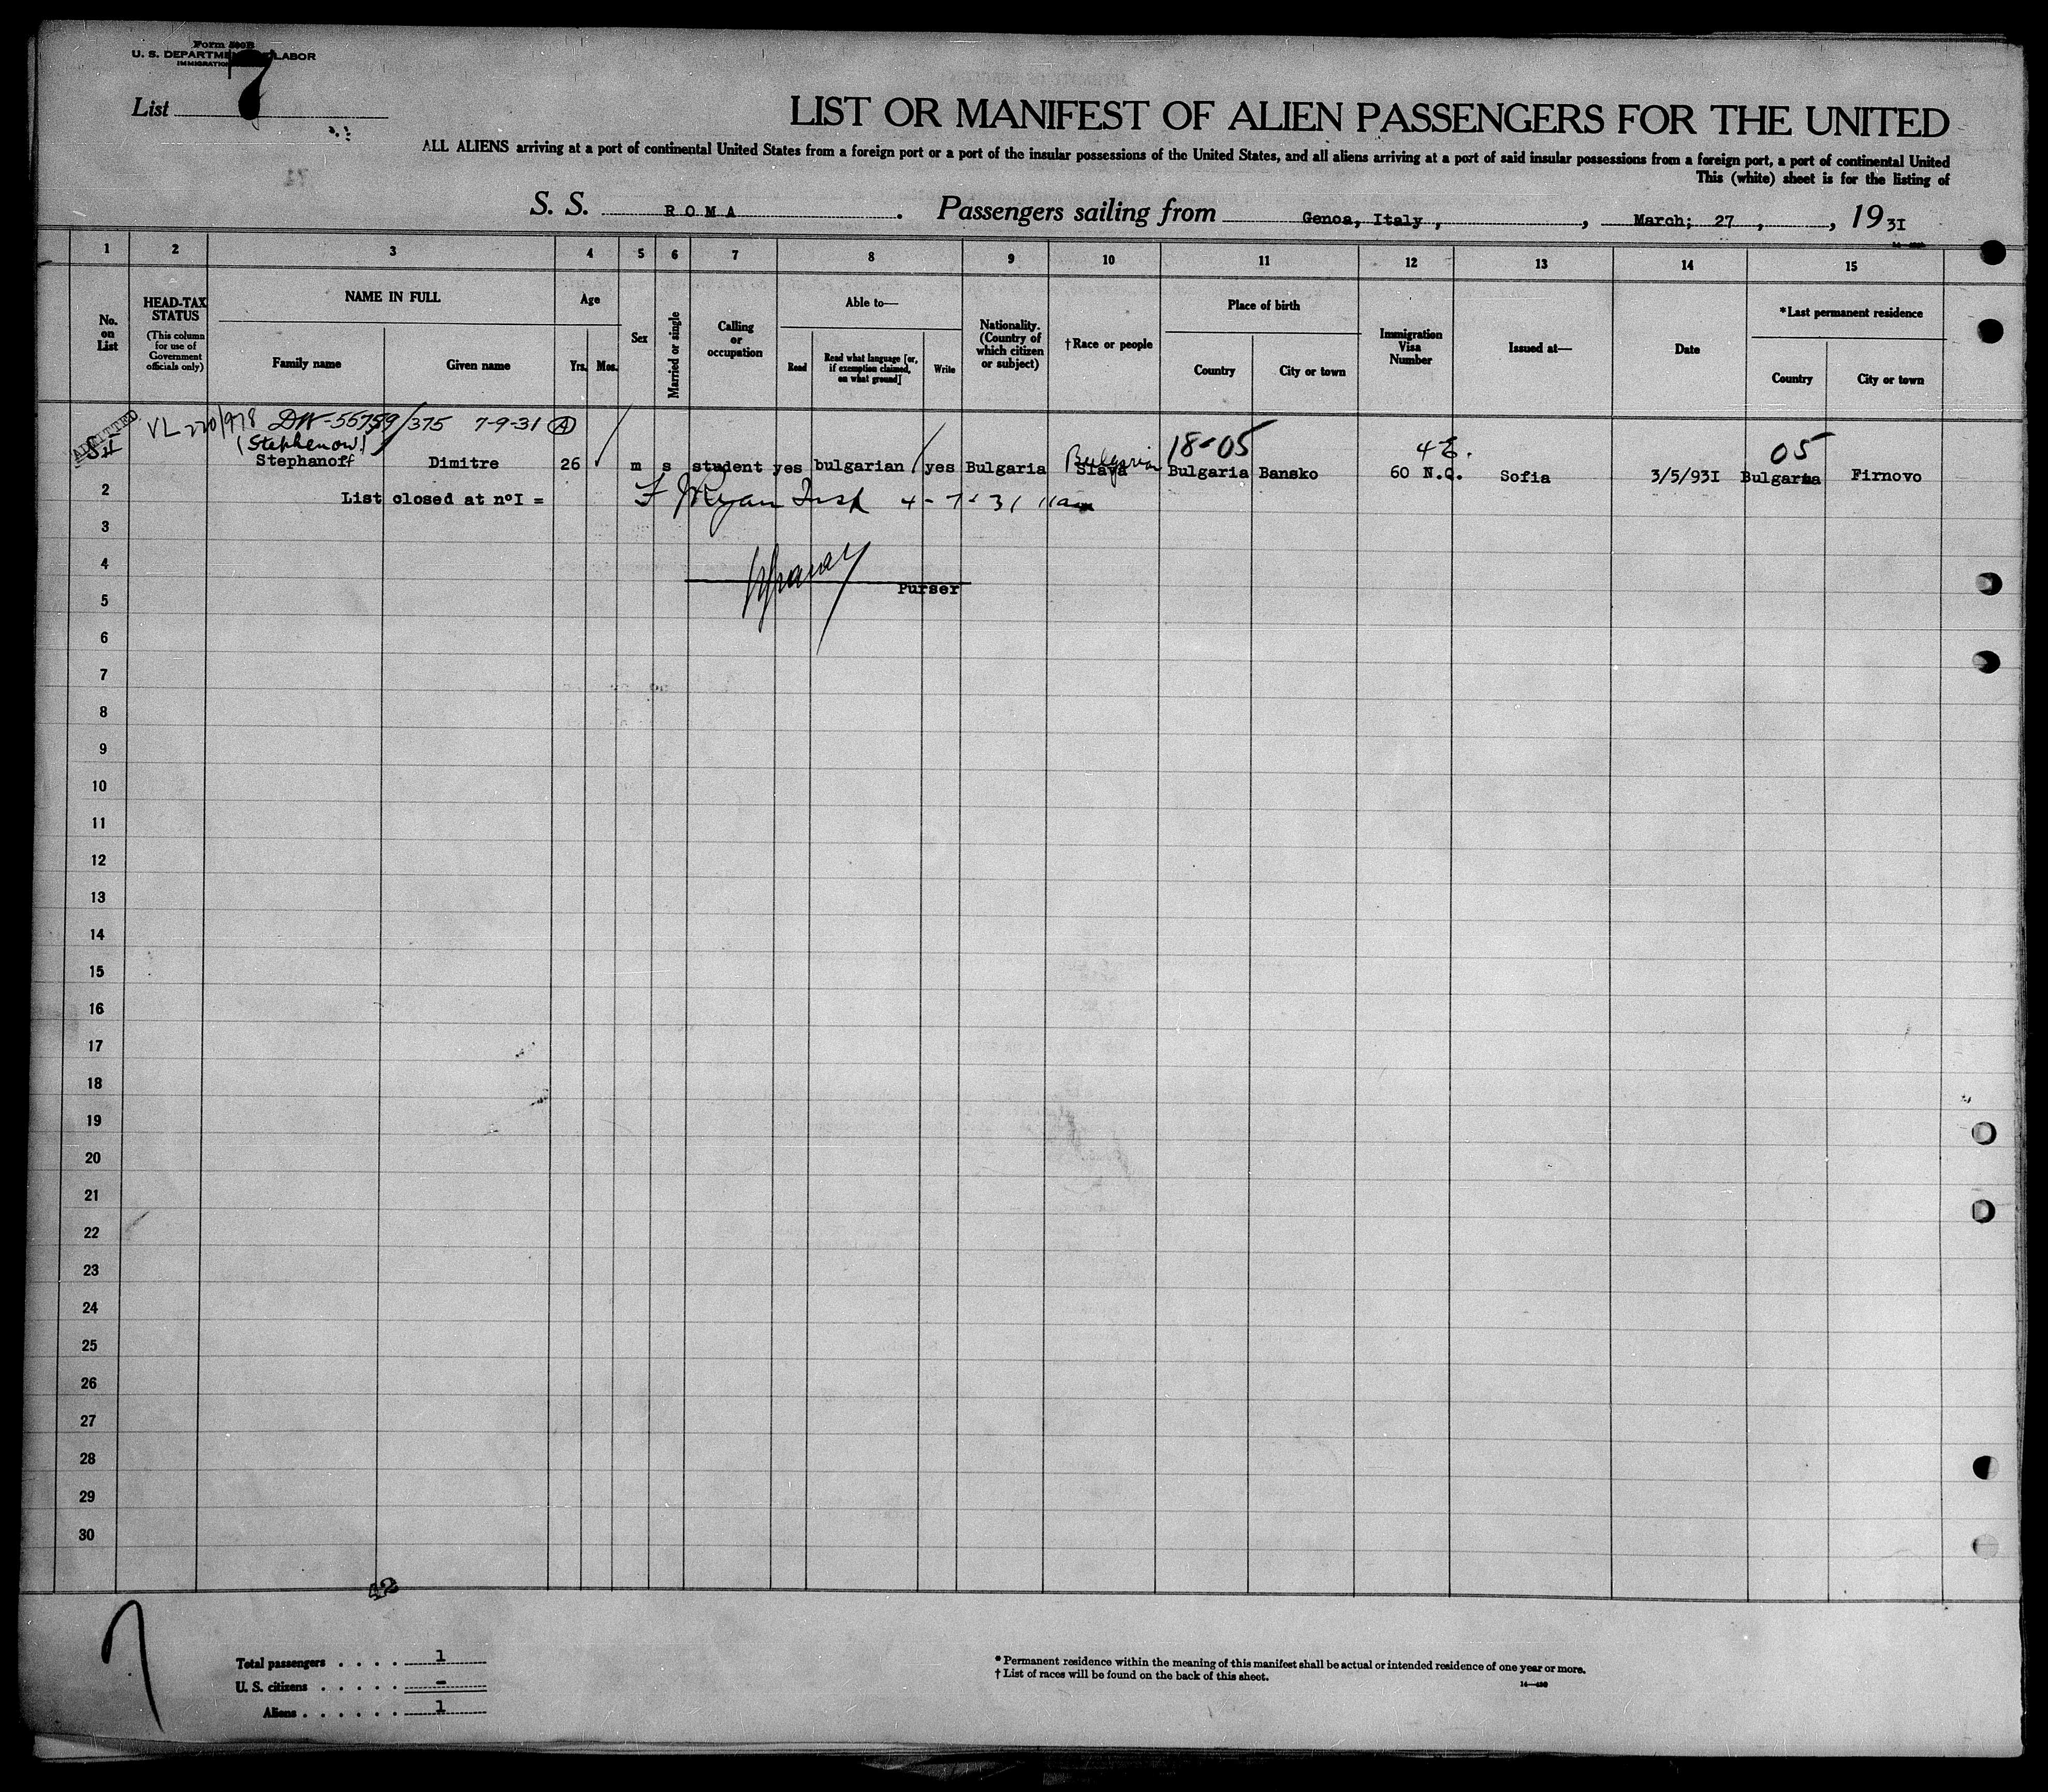 Form 500B
U. S. DEPARTMENT LABOR
IMMIGRATION
List 7
LIST OR MANIFEST OF ALIEN PASSENGERS FOR THE UNITED
ALL ALIENS arriving at a port of continental United States from a foreign port or a port of the insular possessions of the United States, and all aliens arriving at a port of said insular possessions from a foreign port, a port of continental United
This (white) sheet is for the listing of
S. S. ROMA. Passengers sailing from Genoa, Italy, , March; 27 , , 1931
1 2 3 4 5 6 7 8 9 10 11 12 13 14 15
No. on List
HEAD-TAX STATUS
(This column for use of Government officials only)
NAME IN FULL
Family name Given name
Age
Yrs. Mos.
Sex
Married or single
Calling or occupation
Able to—
Read
Read what language [or, if exemption claimed, on what ground]
Write
Nationality. (Country of which citizen or subject)
†Race or people
Place of birth
Country City or town
Immigration Visa Number
Issued at—
Date
*Last permanent residence
Country City or town
ADMITTED
VL 220/978 DW-55759/375 7-9-31 A
(Stephenow) Bulgarian 18-05 4E. 05
Stephanoff Dimitre 26 m s student yes bulgarian yes Bulgaria Slava Bulgaria Bansko 60 N.Q. Sofia 3/5/931 Bulgaria Firnovo
2 List closed at n°I = F Ryan Insp 4-7-31 11am
3
4
Purser
5
6
7
8
9
10
11
12
13
14
15
16
17
18
19
20
21
22
23
24
25
26
27
28
29
30
42
7
Total passengers . . . . 1
U. S. citizens . . . . . -
Aliens . . . . . . 1
* Permanent residence within the meaning of this manifest shall be actual or intended residence of one year or more.
† List of races will be found on the back of this sheet.